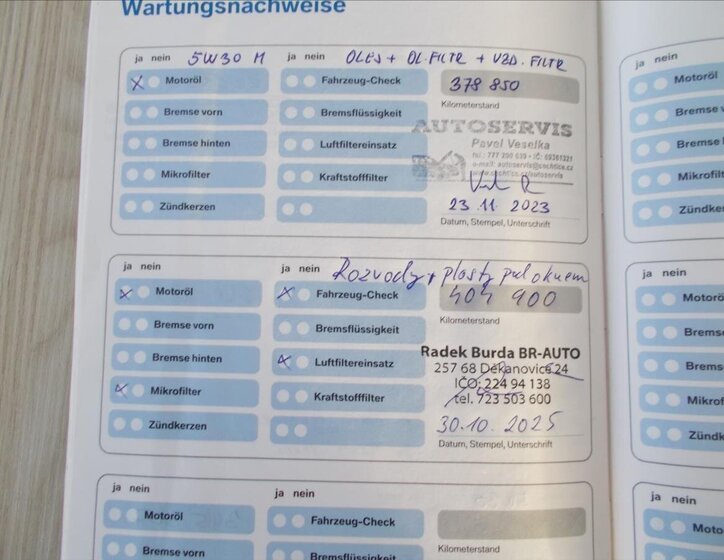 Wartungsnachweise
ja nein 5W30 M ja nein OLEJ + OL. FILTR + VZD. FILTR
Motoröl Fahrzeug-Check 378 850
Kilometerstand
Bremse vorn Bremsflüssigkeit
AUTOSERVIS
Pavel Veselka
Bremse hinten Luftfiltereinsatz
Mikrofilter Kraftstofffilter
Zündkerzen 23 11 2023
Datum, Stempel, Unterschrift
ja nein ja nein Rozvody + plasty pod oknem
Motoröl Fahrzeug-Check 404 900
Kilometerstand
Bremse vorn Bremsflüssigkeit
Radek Burda BR-AUTO
Bremse hinten Luftfiltereinsatz 257 68 Dekanovice 24
IČO: 224 94 138
Mikrofilter Kraftstofffilter tel. 723 503 600
Zündkerzen 30.10.2025
Datum, Stempel, Unterschrift
ja nein ja nein
Motoröl Fahrzeug-Check
Kilometerstand
Bremse vorn Bremsflüssigkeit
ja nein
Motoröl
Bremse v
Bremse h
Mikrofilte
Zündke
ja nein
Motorö
Bremse
Brems
Mikrof
Zündk
ja nein
Moto